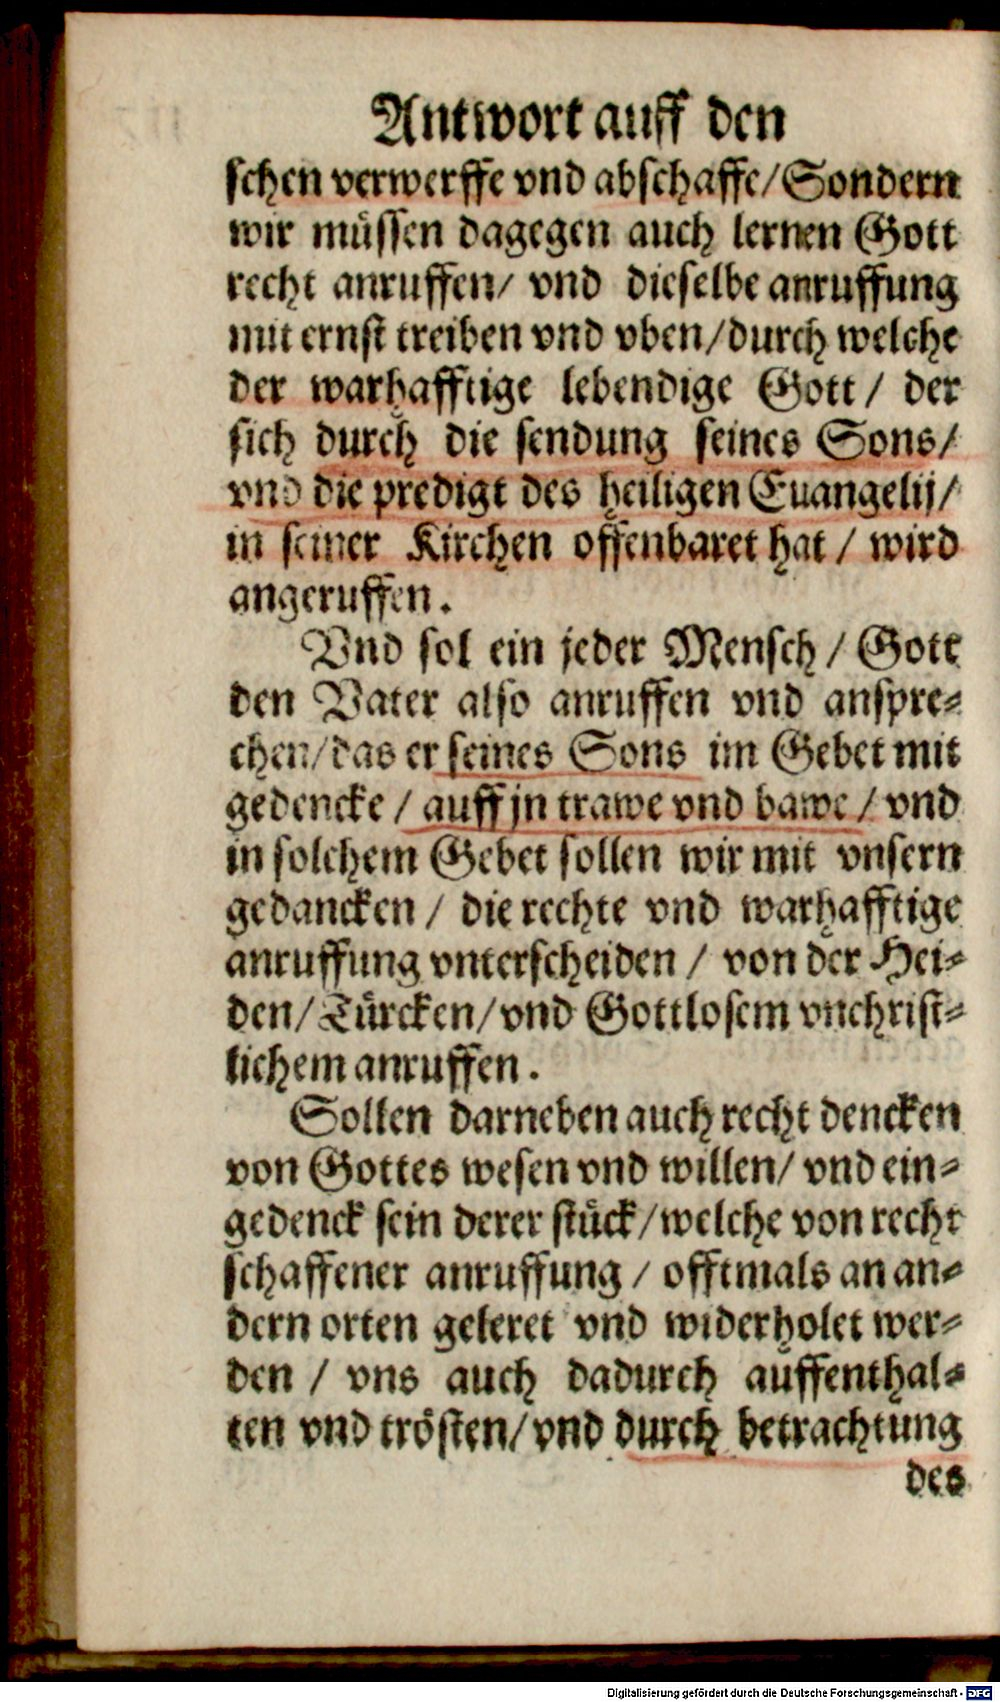 Antwort auff den
schen verwerffe vnd abschaffe/Sondern
wir müssen dagegen auch lernen Gott
recht anruffen/ vnd dieselbe anruffung
mit ernst treiben vnd vben/durch welche
der warhafftige lebendige Gott/ der
sich durch die sendung seines Sons/
vnd die predigt des heiligen Euangelij/
in seiner Kirchen offenbaret hat/ wird
angeruffen.
Vnd sol ein jeder Mensch/ Gott
den Vater also anruffen vnd anspre-
chen/das er seines Sons im Gebet mit
gedencke/ auff jn trawe vnd bawe/ vnd
in solchem Gebet sollen wir mit vnsern
gedancken/ die rechte vnd warhafftige
anruffung vnterscheiden/ von der Hei-
den/Türcken/vnd Gottlosem vnchrist-
lichem anruffen.
Sollen darneben auch recht dencken
von Gottes wesen vnd willen/ vnd ein-
gedenck sein derer stück/welche von recht
schaffener anruffung/ offtmals an an-
dern orten geleret vnd widerholet wer-
den/ vns auch dadurch auffenthal-
ten vnd trösten/vnd durch betrachtung
des
Digitalisierung gefördert durch die Deutsche Forschungsgemeinschaft - DFG